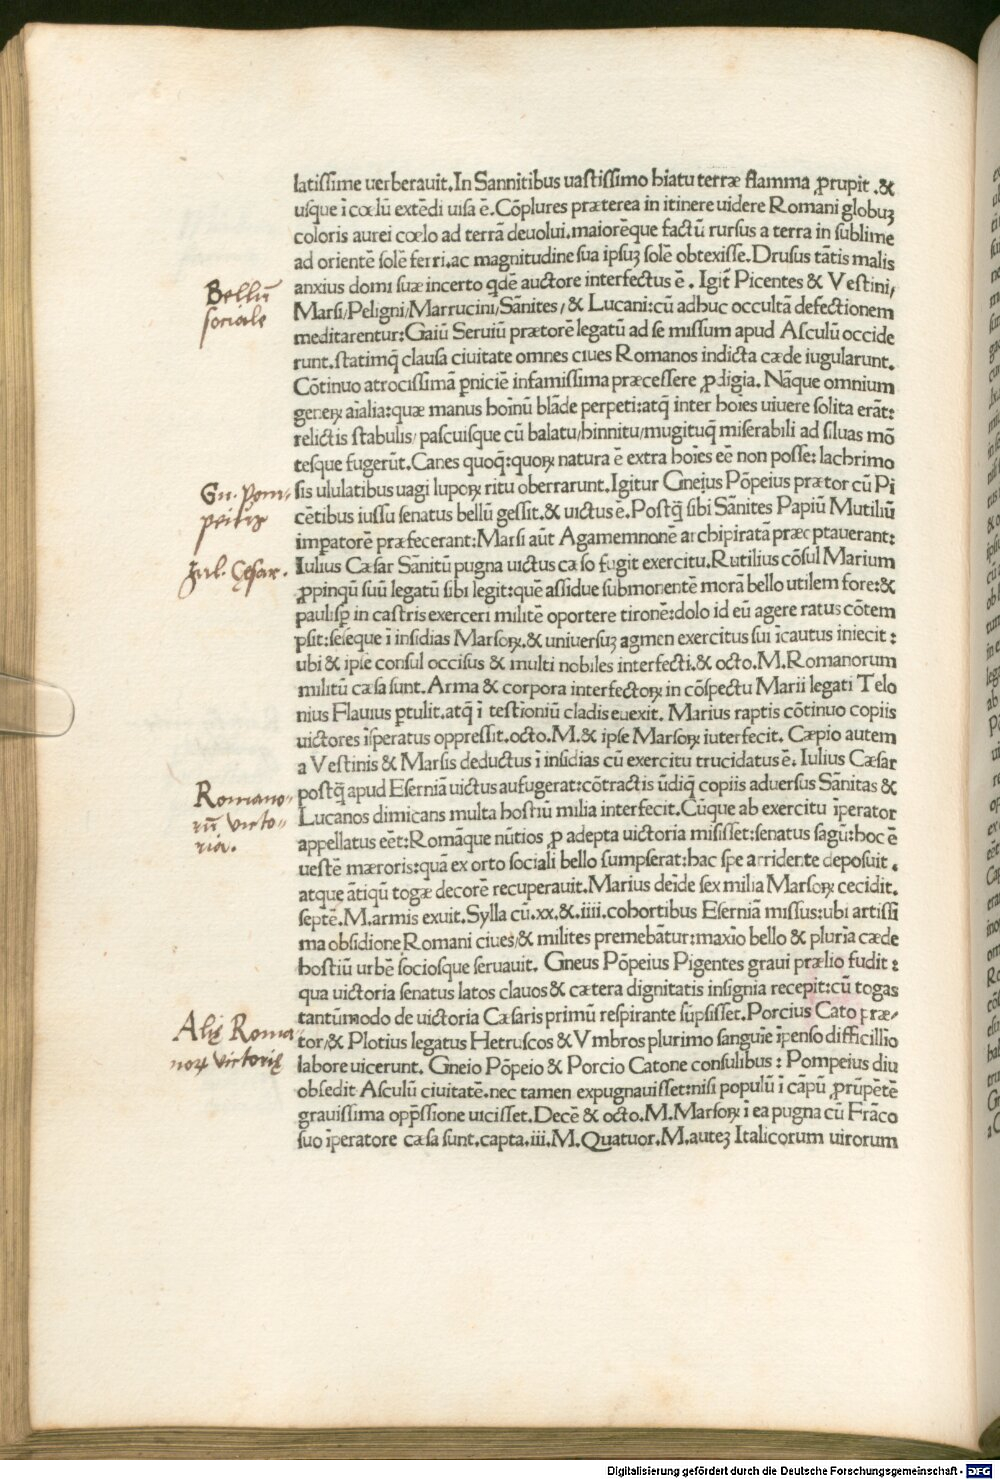 latissime uerberauit. In Sannitibus uastissimo hiatu terræ flamma ꝓrupit .&
usque ī cœlū extēdi uisa ē. Cōplures præterea in itinere uidere Romani globuꝫ
coloris aurei cœlo ad terrā deuolui. maiorēque factū rursus a terra in sublime
ad orientē solē ferri. ac magnitudine sua ipsuꝫ solē obtexisse. Drusus tātis malis
anxius domi suæ incerto qdē auctore interfectus ē . Igit̄ Picentes & Vestini/
Bellū
sociale
Marsi/Peligni/Marrucini/Sānites/& Lucani: cū adhuc occultā defectionem
meditarentur: Gaiū Seruiū prætorē legatū ad se missum apud Asculū occide
runt. statimq̄ clausa ciuitate omnes ciues Romanos indicta cæde iugularunt.
Cōtinuo atrocissimā ꝑniciē infamissima præcessere ꝓdigia. Nāque omnium
generꝝ aīalia: quæ manus hoīnū blāde perpeti: atq̄ inter hoīes uiuere solita erāt:
relictis stabulis/ pascuisque cū balatu/hinnitu/mugituq̄ miserabili ad siluas mō
tesque fugerūt. Canes quoq̄: quorꝝ natura ē extra hoīes eē non posse: lachrimo
Gn. Pom-
peius
sis ululatibus uagi luporꝝ ritu oberrarunt. Igitur Gneius Pōpeius prætor cū Pi
cētibus iussu senatus bellū gessit. & uictus ē. Postq̄ sibi Sānites Papiū Mutiliū
impatorē præfecerant: Marsi aūt Agamemnonē archipiratā præcptauerant:
Iul. Cęsar.
Iulius Cæsar Sānitū pugna uictus cæso fugit exercitu. Rutilius cōsul Marium
ꝓpinqū suū legatū sibi legit: quē assidue submonentē morā bello utilem fore: &
paulisꝑ in castris exerceri militē oportere tironē: dolo id eū agere ratus cōtem
psit: seseque ī insidias Marsorꝝ. & uniuersuꝫ agmen exercitus sui īcautus iniecit :
ubi & ipse consul occisus & multi nobiles interfecti. & octo. M. Romanorum
militū cæsa sunt. Arma & corpora interfectorꝝ in cōspectu Marii legati Telo
nius Flauius ꝑtulit. atq̄ ī testioniū cladis euexit. Marius raptis cōtinuo copiis
uictores īsperatus oppressit. octo. M. & ipse Marsorꝝ iuterfecit. Cæpio autem
a Vestinis & Marsis deductus ī insidias cū exercitu trucidatus ē. Iulius Cæsar
Romano-
rū victo-
ria.
postq̄ apud Eserniā uictus aufugerat: cōtractis ūdiq̄ copiis aduersus Sānitas &
Lucanos dimicans multa hostiū milia interfecit. Cūque ab exercitu īperator
appellatus eēt: Romāque nūtios ꝓ adepta uictoria misisset: senatus sagū: hoc ē
uestē mæroris: quā ex orto sociali bello sumpserat: hac spe arridente deposuit .
atque ātiqū togæ decorē recuperauit. Marius deīde sex milia Marsorꝝ cecidit.
septē. M. armis exuit. Sylla cū. xx. &. iiii. cohortibus Eserniā missus: ubi artissi
ma obsidione Romani ciues/& milites premebātur: maxīo bello & plurīa cæde
hostiū urbē sociosque seruauit. Gneus Pōpeius Pigentes graui prælio fudit :
qua uictoria senatus latos clauos & cætera dignitatis insignia recepit: cū togas
Alię Roma
norꝝ victorię
tantūmodo de uictoria Cæsaris primū respirante sūpsisset. Porcius Cato præ-
tor/& Plotius legatus Hetruscos & Vmbros plurimo sanguīe īpenso difficillīo
labore uicerunt. Gneio Pōpeio & Porcio Catone consulibus : Pompeius diu
obsedit Asculū ciuitatē. nec tamen expugnauisset: nisi populū ī cāpū ꝓrūpētē
grauissima oppssione uicisset. Decē & octo. M. Marsorꝝ ī ea pugna cū Frāco
suo īperatore cæsa sunt. capta. iii. M. Quatuor. M. auteꝫ Italicorum uirorum
Digitalisierung gefördert durch die Deutsche Forschungsgemeinschaft - DFG